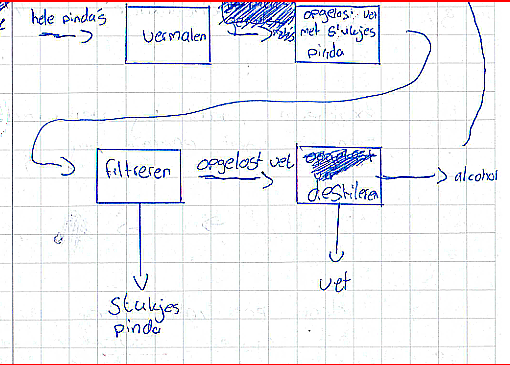 hele pinda's
vermalen
opgelost vet
met stukjes
pinda
filtreren
opgelost vet
destileren
alcohol
vet
Stukjes
pinda